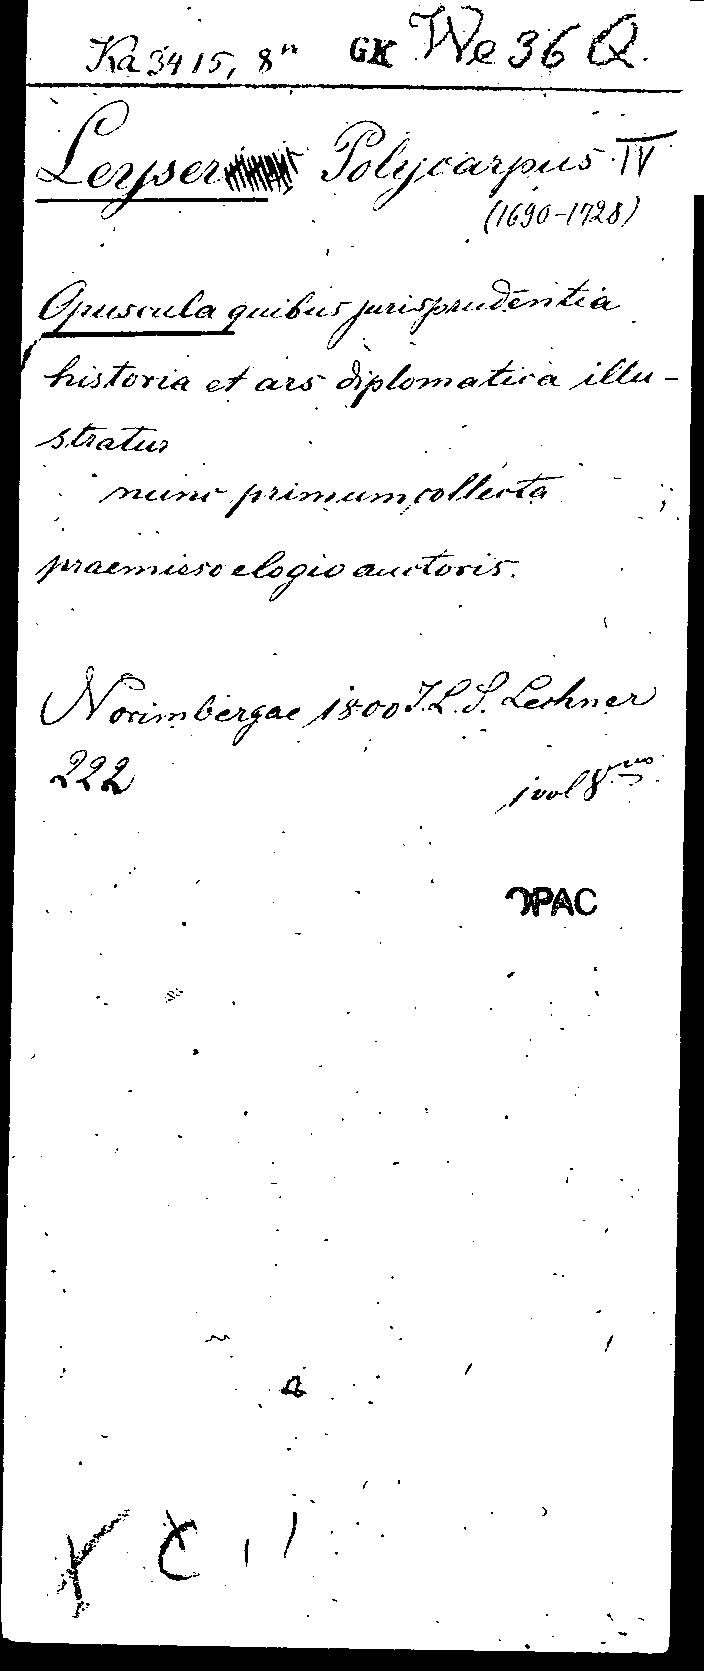 Ka 3415, 8° GK We 36 Q.
Leyser Polycarpus IV
(1690-1728)
Opuscula quibus jurisprudentia
historia et ars diplomatica illu-
stratur
nunc primum collecta
praemisso elogio auctoris.
Norimbergae 1800 J.L.S. Lechner
222
1 vol 8vo
OPAC